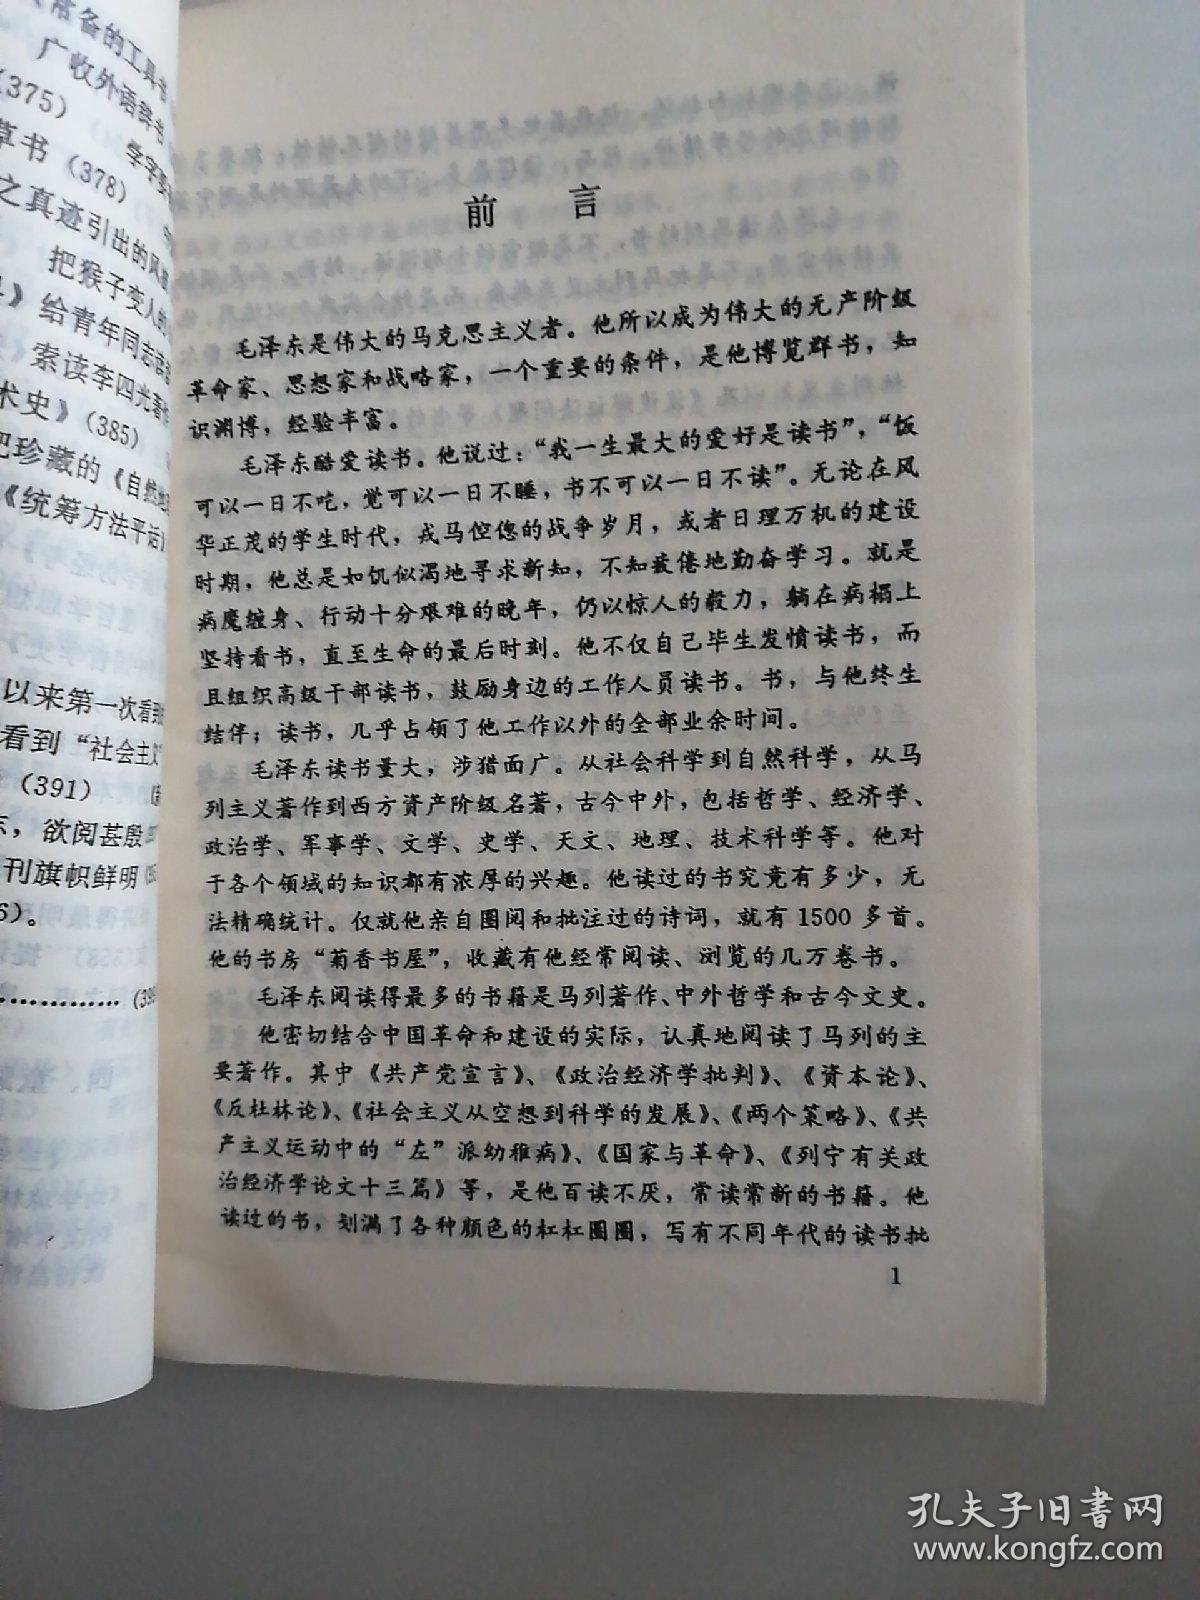 常备的工具书
广收外语辞书
(375)
学字
草书（378）
之真迹引出的风
把猴子变人的
》给青年同志
索读李四光著
术史》(385)
把珍藏的《自然
《统筹方法平话》
以来第一次看到
看到“社会主义
(391)
欲阅甚殷
刊旗帜鲜明
6)。
前 言
毛泽东是伟大的马克思主义者。他所以成为伟大的无产阶级
革命家、思想家和战略家，一个重要的条件，是他博览群书，知
识渊博，经验丰富。
毛泽东酷爱读书。他说过：“我一生最大的爱好是读书”，“饭
可以一日不吃，觉可以一日不睡，书不可以一日不读”。无论在风
华正茂的学生时代，戎马倥偬的战争岁月，或者日理万机的建设
时期，他总是如饥似渴地寻求新知，不知疲倦地勤奋学习。就是
病魔缠身、行动十分艰难的晚年，仍以惊人的毅力，躺在病榻上
坚持看书，直至生命的最后时刻。他不仅自己毕生发愤读书，而
且组织高级干部读书，鼓励身边的工作人员读书。书，与他终生
结伴；读书，几乎占领了他工作以外的全部业余时间。
毛泽东读书量大，涉猎面广。从社会科学到自然科学，从马
列主义著作到西方资产阶级名著，古今中外，包括哲学、经济学、
政治学、军事学、文学、史学、天文、地理、技术科学等。他对
于各个领域的知识都有浓厚的兴趣。他读过的书究竟有多少，无
法精确统计。仅就他亲自圈阅和批注过的诗词，就有1500多首。
他的书房“菊香书屋”，收藏有他经常阅读、浏览的几万卷书。
毛泽东阅读得最多的书籍是马列著作、中外哲学和古今文史。
他密切结合中国革命和建设的实际，认真地阅读了马列的主
要著作。其中《共产党宣言》、《政治经济学批判》、《资本论》、
《反杜林论》、《社会主义从空想到科学的发展》、《两个策略》、《共
产主义运动中的“左”派幼稚病》、《国家与革命》、《列宁有关政
治经济学论文十三篇》等，是他百读不厌，常读常新的书籍。他
读过的书，划满了各种颜色的杠杠圈圈，写有不同年代的读书批
1
孔夫子旧书网
www.kongfz.com